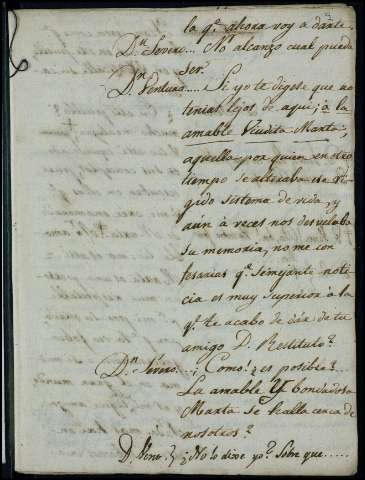 la q.e ahora voy a darte.
D.n Severo... No alcanzo cual pueda
ser.
D.n Ventura.... Si yo te digese que no
tenias lejos de aqui, á la
amable Viudita Marta,
aquella por quien en otro
tiempo se alteraba ese rí-
gido sistema de vida, y
aún à veces nos desvelaba
su memoria, no me con
fesarias q.e semejante noti
cia es muy superior à la
q.e te acabo de dár de tu
amigo D. Restituto?
D.n Sevéro... ¡Como! ¿es posible?...
La amable Y bondadosa
Marta se halla cerca de
nosotros?
D. Vent. ¿No lo dixe yo? Sobre que.....